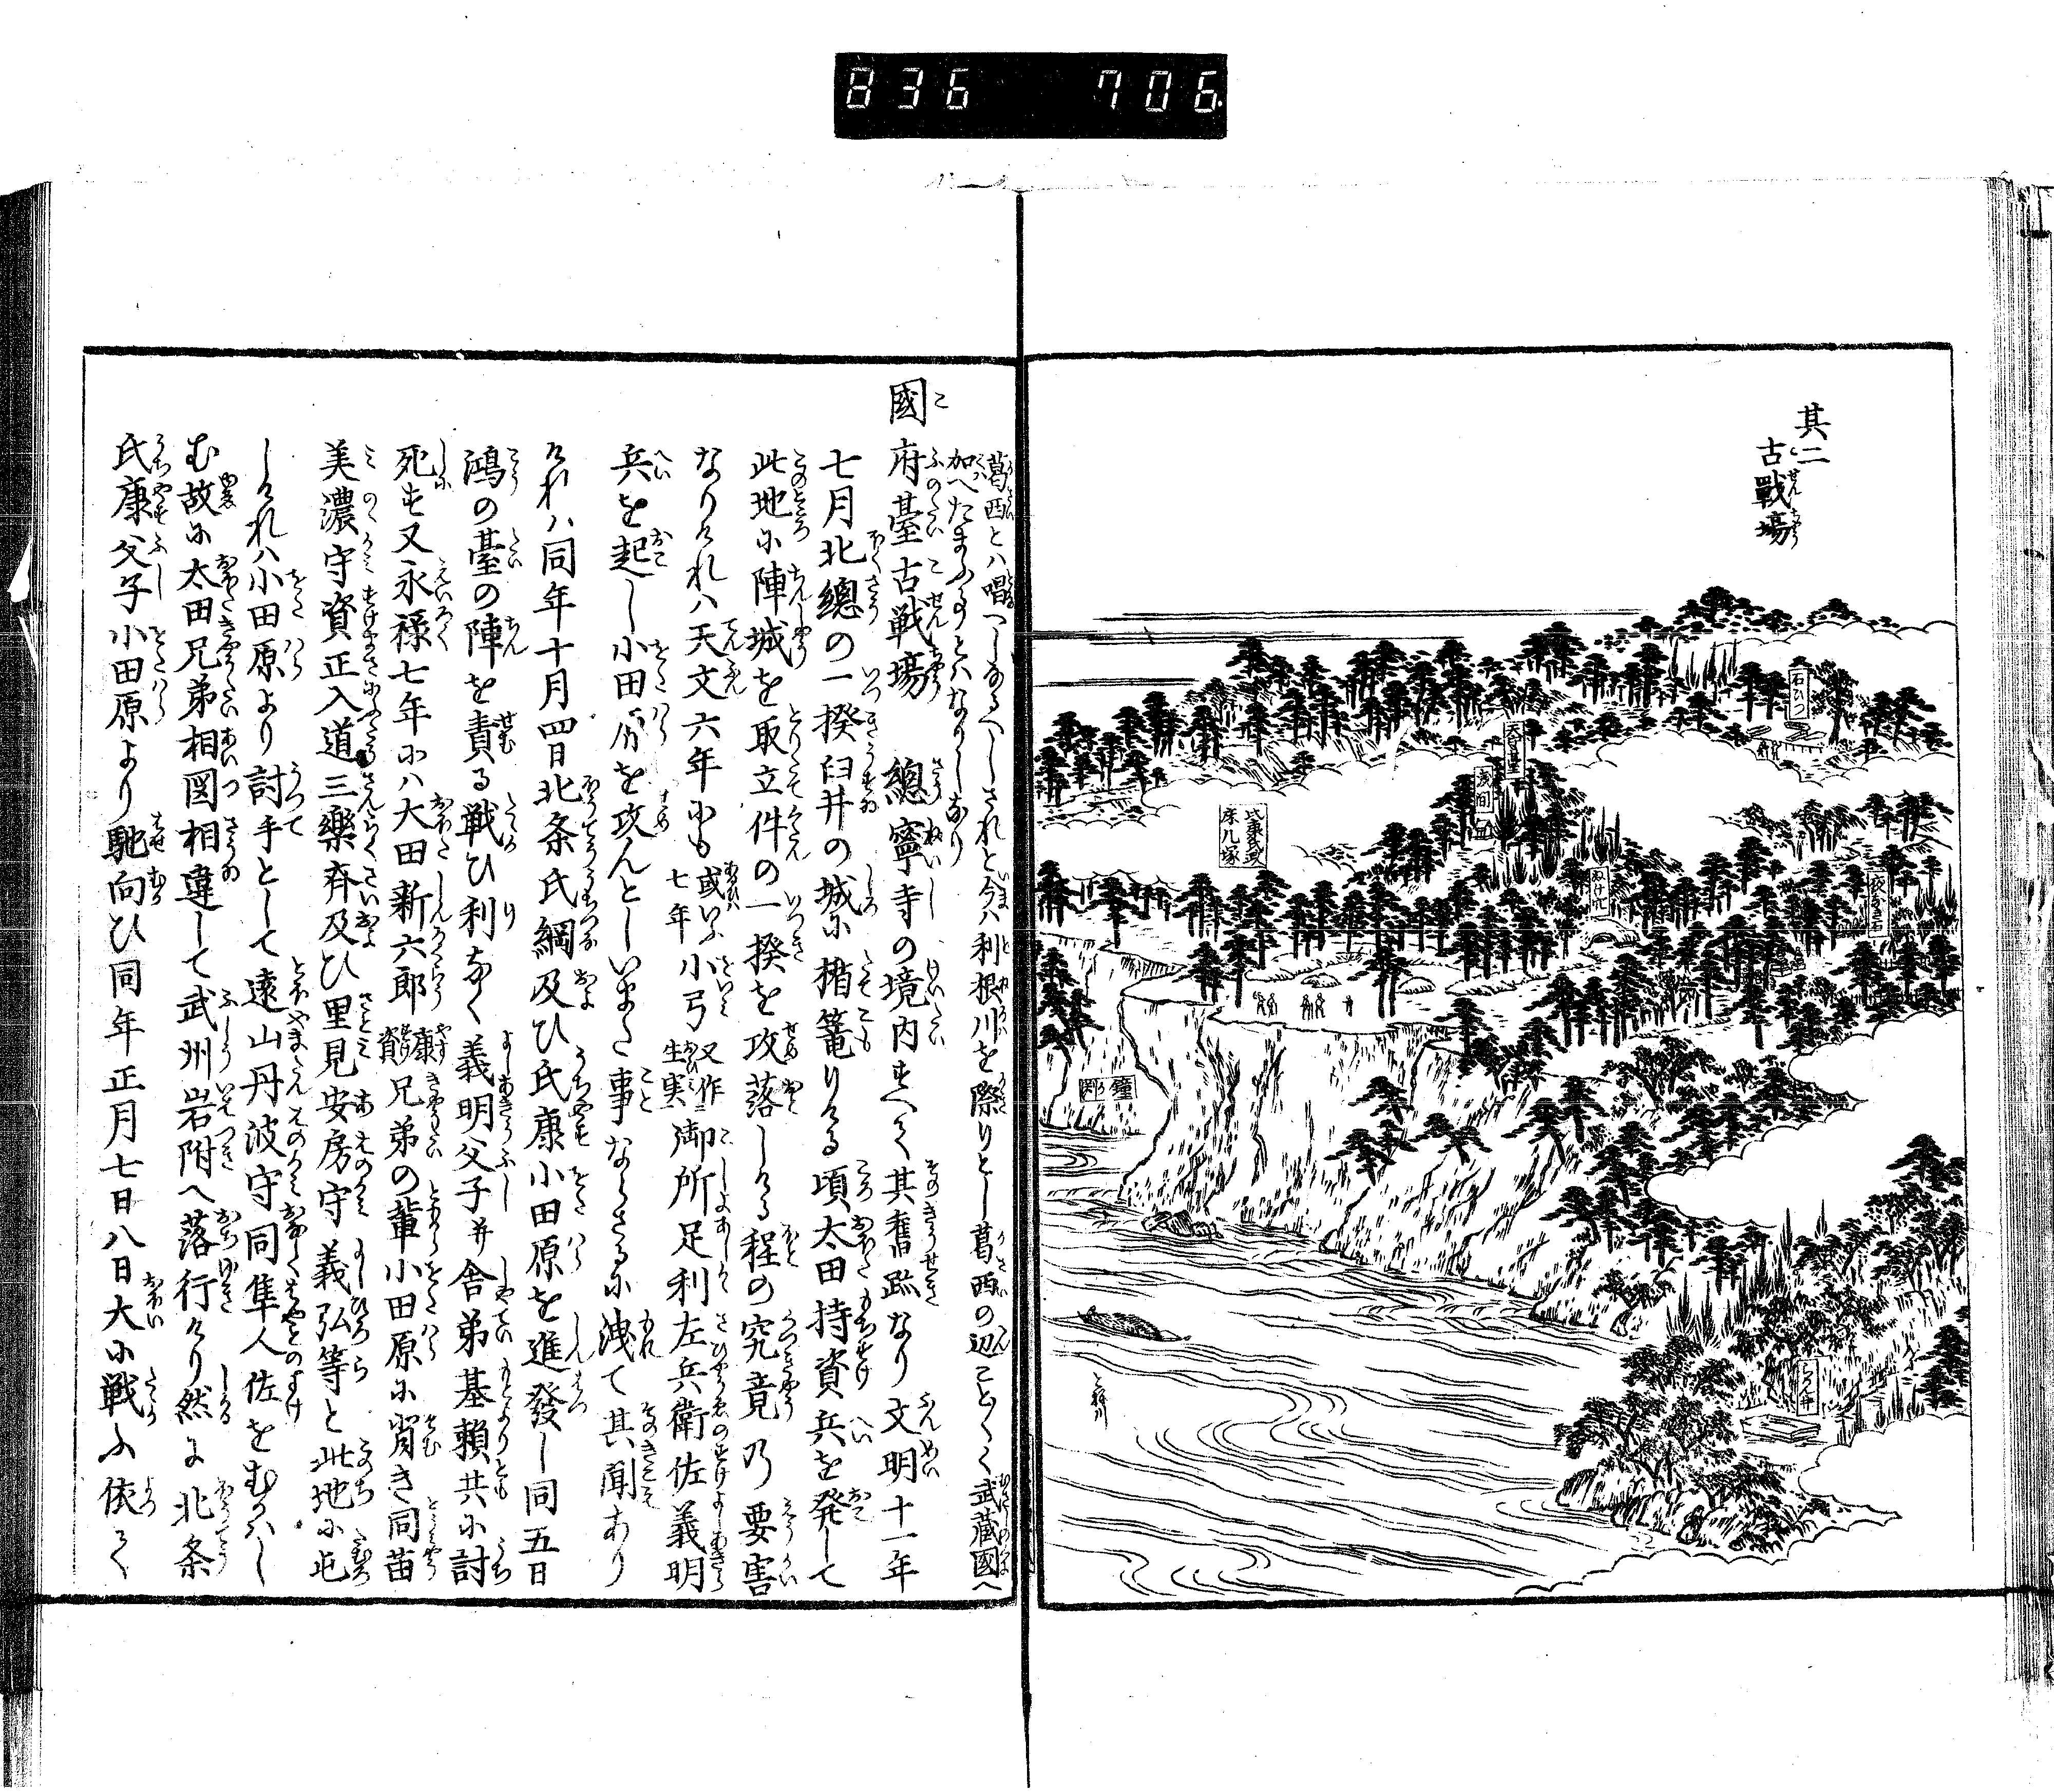 836 706
其二
古戰場
石ひつ
天満宮
床几塚
夜なき石
鐘か淵
らかん井
とね川
葛西とハ唱へしなるへしされと今ハ利根川を際りとし葛西の辺こと〱く武蔵國へ
加へたまふ
國府臺古戦場 總寧寺の境内すへて其舊趾なり文明十一年
七月北總の一揆臼井の城に楯篭りける頃太田持資兵を発して
此地に陣城を取立件の一揆を攻落しける程の究竟乃要害
なりけれハ天文六年にも或いふ七年小弓又作生実御所足利左兵衛佐義明
兵を起し小田原を攻んとしいまた事ならさるに洩て其聞あり
けれハ同年十月四日北条氏綱及ひ氏康小田原を進發し同五日
鴻の臺の陣を責る戦ひ利なく義明父子并舎弟基頼共に討
死す又永禄七年にハ太田新六郎康資兄弟の輩小田原に背き同苗
美濃守資正入道三樂斉及ひ里見安房守義弘等と此地に屯
しけれハ小田原より討手として遠山丹波守同隼人佐をむかハし
む故に太田兄弟相図相違して武州岩附へ落行けり然に北条
氏康父子小田原より馳向ひ同年正月七日八日大に戦ふ依て